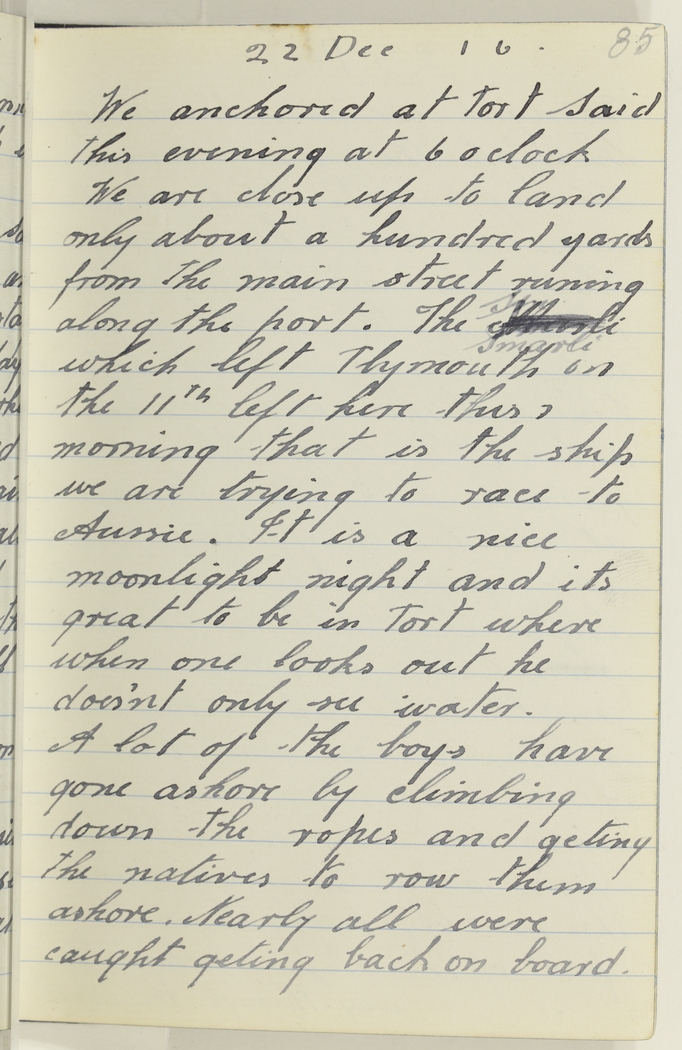 85
22 Dec 16.
We anchored at Port Said
this evening at 6 oclock
We are close up to land
only about a hundred yards
from the main street runing
along the port. The
Smarli
which left Plymouth on
the 11th left here this
morning that is the ship
we are trying to race to
Aussie. It is a nice
moonlight night and its
great to be in Port where
when one looks out he
does'nt only see water.
A lot of the boys have
gone ashore by climbing
down the ropes and geting
the natives to row them
ashore. Nearly all were
caught geting back on board.